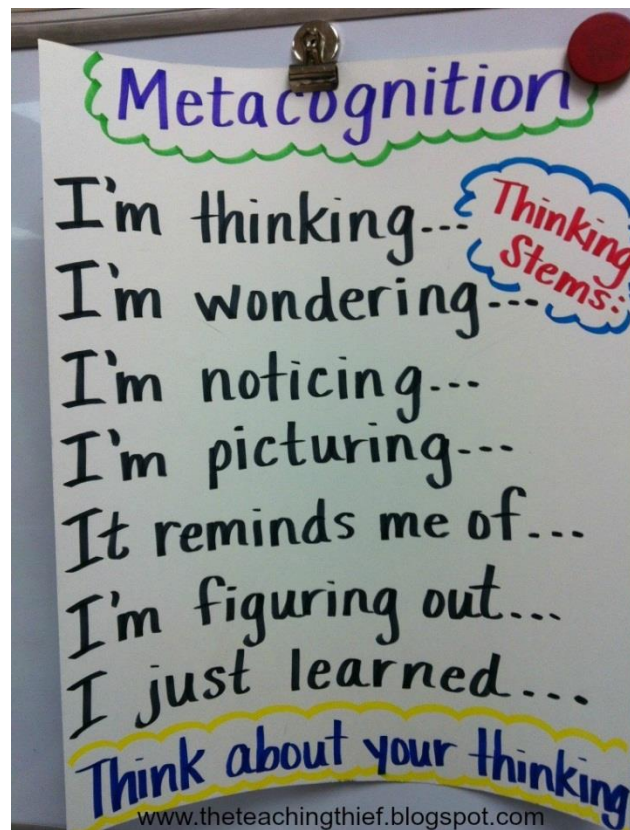 Metacognition
Thinking
Stems:
I'm thinking...
I'm wondering...
I'm noticing...
I'm picturing...
It reminds me of...
I'm figuring out...
I just learned...
Think about your thinking
www.theteachingthief.blogspot.com